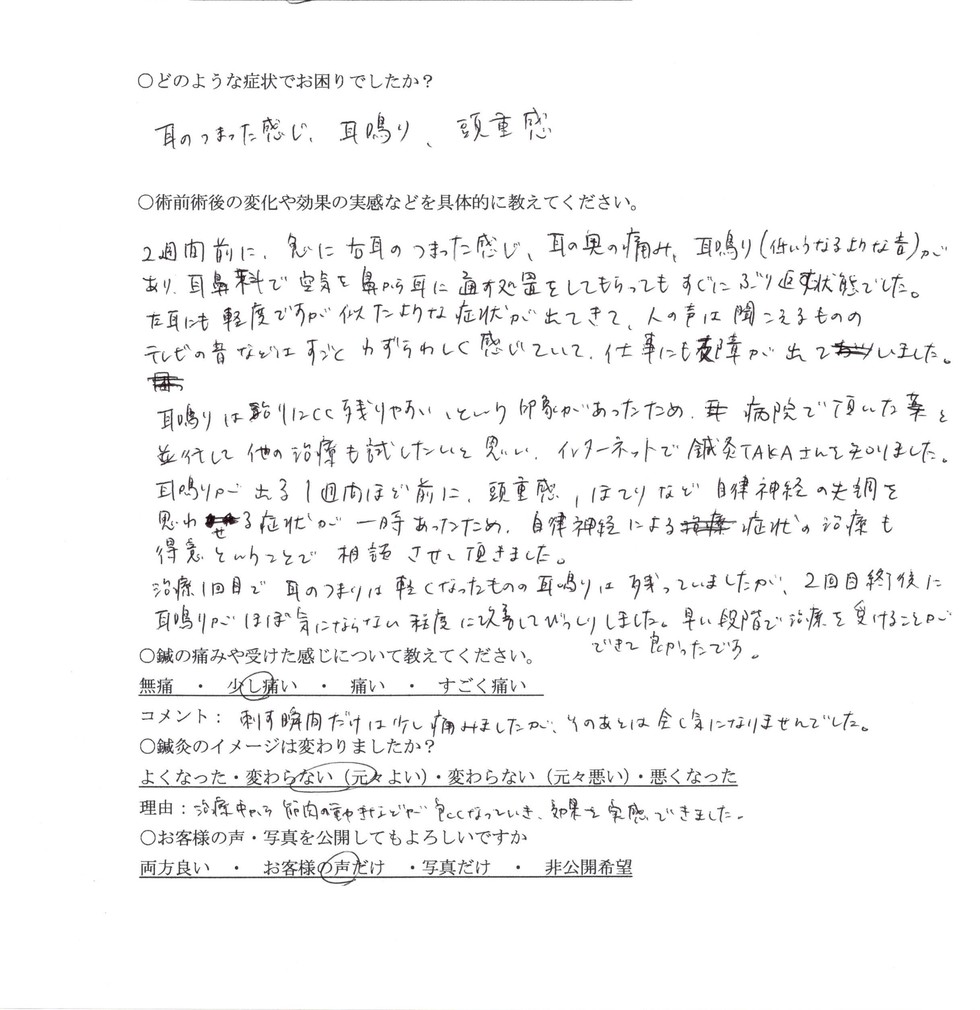 ○どのような症状でお困りでしたか？
耳のつまった感じ、耳鳴り、頭重感
○術前術後の変化や効果の実感などを具体的に教えてください。
2週間前に、急に右耳のつまった感じ、耳の奥の痛み、耳鳴り(低いうなるような音)が
あり、耳鼻科で空気を鼻から耳に通す処置をしてもらってもすぐにぶり返す状態でした。
左耳にも軽度ですが似たような症状が出てきて、人の声は聞こえるものの
テレビの音などはすごくわずらわしく感じていて、仕事にも支障が出ていました。
耳鳴りは治りにくく残りやすい、という印象があったため、病院で頂いた薬と
並行して他の治療も試したいと思い、インターネットで鍼灸TAKAさんを知りました。
耳鳴りが出る1週間ほど前に、頭重感、ほてりなど自律神経の失調を
思わせる症状が一時あったため、自律神経による症状の治療も
得意ということで相談させて頂きました。
治療1回目で耳のつまりは軽くなったものの耳鳴りは残っていましたが、2回目終後に
耳鳴りがほぼ気にならない程度に改善してびっくりしました。早い段階で治療を受けることが
できて良かったです。
○鍼の痛みや受けた感じについて教えてください。
無痛 ・ 少し痛い ・ 痛い ・ すごく痛い
コメント： 刺す瞬間だけは少し痛みましたが、そのあとは全く気になりませんでした。
○鍼灸のイメージは変わりましたか？
よくなった・変わらない（元々よい）・変わらない（元々悪い）・悪くなった
理由：治療中から筋肉の動きなどが良くなっていき、効果を実感できました。
○お客様の声・写真を公開してもよろしいですか
両方良い ・ お客様の声だけ ・写真だけ ・ 非公開希望